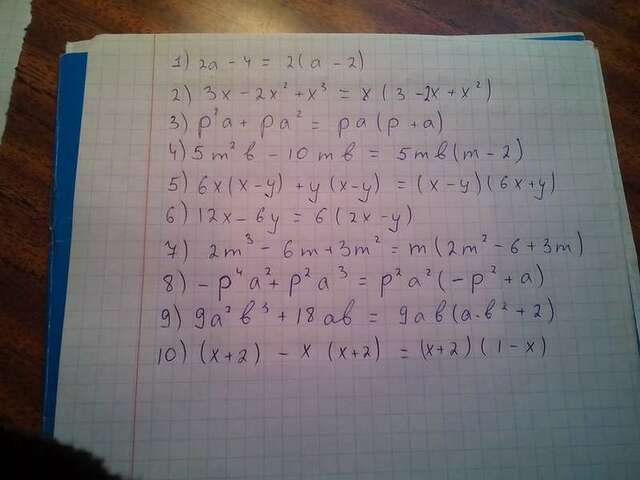 1) 2a - 4 = 2(a - 2)
2) 3x - 2x² + x³ = x(3 - 2x + x²)
3) p²a + pa² = pa(p + a)
4) 5m²в - 10mв = 5mв(m - 2)
5) 6x(x-y) + y(x-y) = (x-y)(6x+y)
6) 12x - 6y = 6(2x - y)
7) 2m³ - 6m + 3m² = m(2m² - 6 + 3m)
8) -p⁴a² + p²a³ = p²a²(-p² + a)
9) 9a²в³ + 18aв = 9aв(a·в² + 2)
10) (x+2) - x (x+2) = (x+2)(1-x)